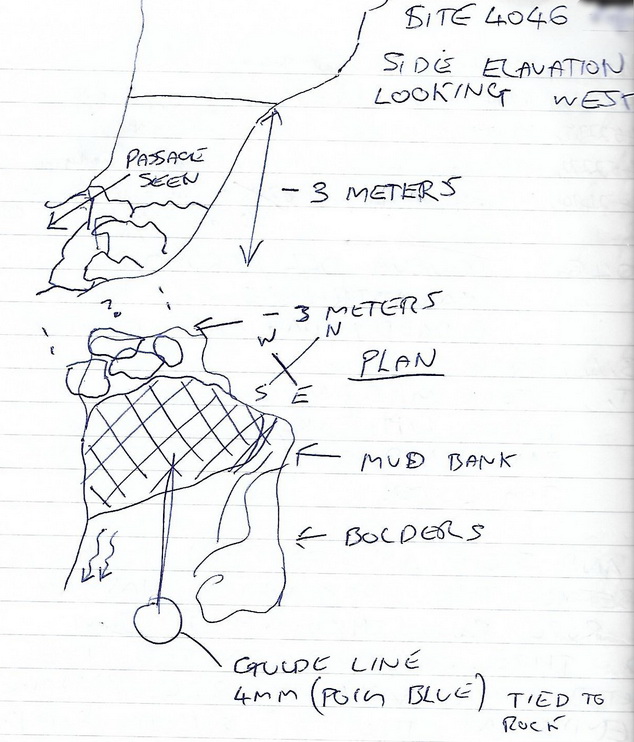 SITE 4046
SIDE ELAVATION
LOOKING WEST
PASSAGE
SEEN
- 3 METERS
?
- 3 METERS
W N
S E
PLAN
MUD BANK
BOLDERS
GUIDE LINE
4MM (POLY BLUE) TIED TO
ROCK